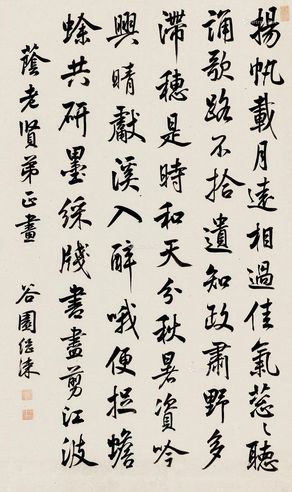 揚帆載月遠相過佳氣葱〻聽
誦歌路不拾遺知政肅野多
滯穗是時和天分秋暑資吟
興晴獻溪入醉哦便捉蟾
蜍共研墨綵牋書盡剪江波
蔭老賢弟正畫
谷園继涑